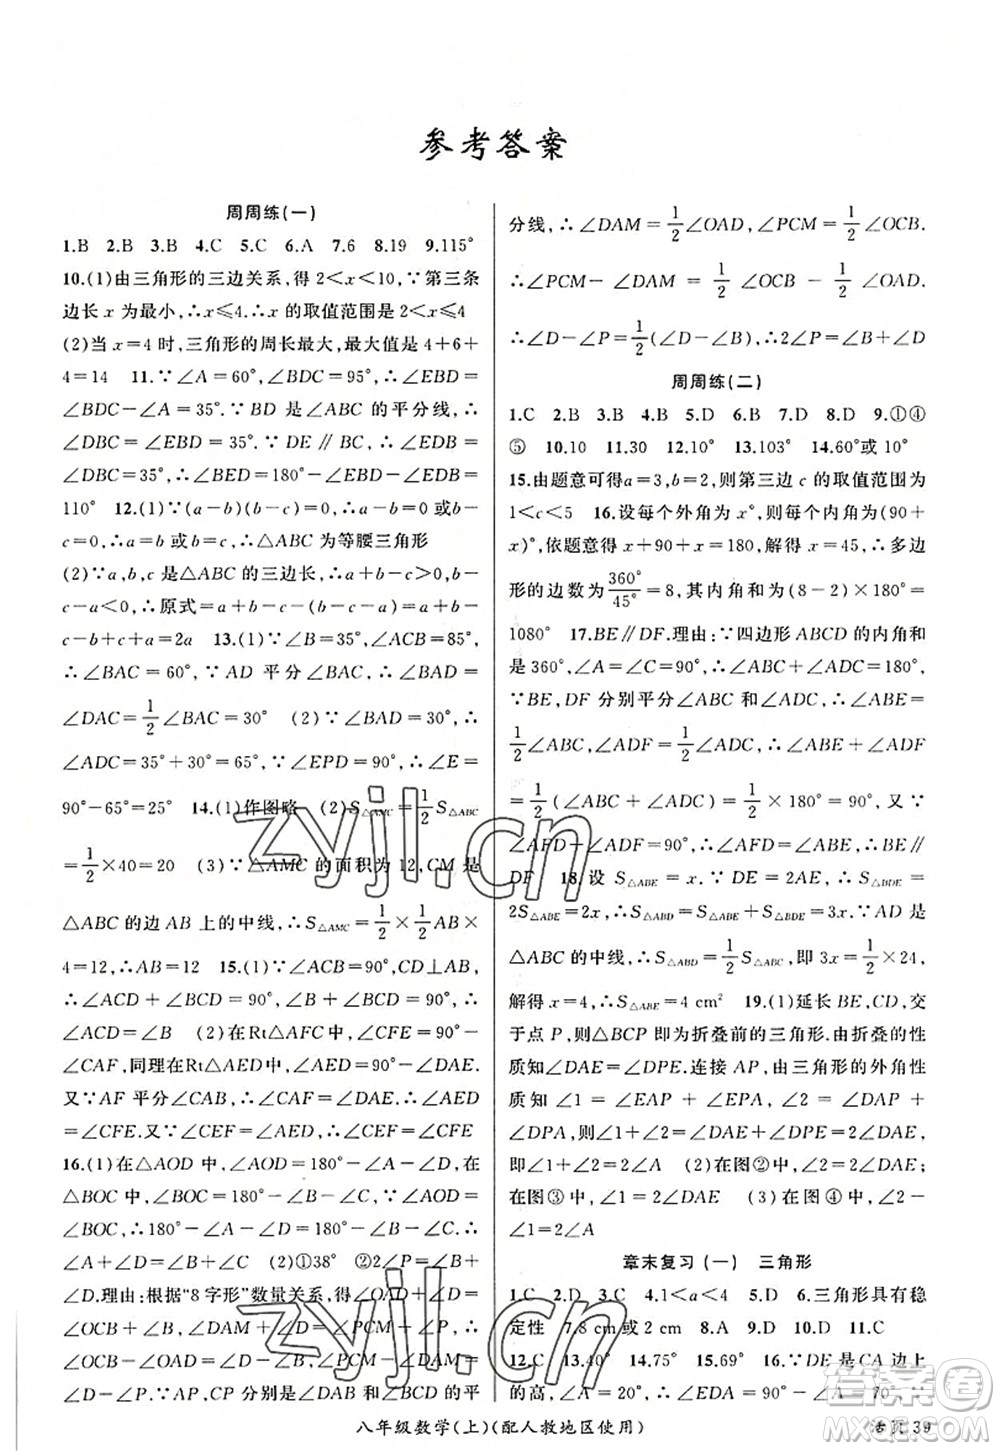 参考答案
周周练(一)
1.B 2.B 3.B 4.C 5.C 6.A 7.6 8.19 9.115°
10.(1)由三角形的三边关系,得2<x<10,∵第三条
边长x为最小,∴x≤4.∴x的取值范围是2<x≤4
(2)当x=4时,三角形的周长最大,最大值是4+6+
4=14 11.∵∠A=60°,∠BDC=95°,∴∠EBD=
∠BDC-∠A=35°.∵BD是∠ABC的平分线,∴
∠DBC=∠EBD=35°.∵DE∥BC,∴∠EDB=
∠DBC=35°,∴∠BED=180°-∠EBD-∠EDB=
110° 12.(1)∵(a-b)(b-c)=0,∴a-b=0或b-
c=0,∴a=b或b=c,∴△ABC为等腰三角形
(2)∵a,b,c是△ABC的三边长,∴a+b-c>0,b-
c-a<0,∴原式=a+b-c-(b-c-a)=a+b-
c-b+c+a=2a 13.(1)∵∠B=35°,∠ACB=85°,
∴∠BAC=60°.∵AD平分∠BAC,∴
∠DAC=1/2∠BAC=30° (2)∵∠BAD=30°,∴
∠ADC=35°+30°=65°,∵∠EPD=90°,∴∠E=
90°-65°=25° 14.(1)作图略 (2)S△AMC=1/2S△ABC
=1/2×40=20 (3)∵△AMC的面积为12,CM是
△ABC的边AB上的中线,∴S△AMC=1/2×1/2AB×
4=12,∴AB=12 15.(1)∵∠ACB=90°,CD⊥AB,
∴∠ACD+∠BCD=90°,∠B+∠BCD=90°,∴
∠ACD=∠B (2)在Rt△AFC中,∠CFE=90°-
∠CAF,同理在Rt△AED中,∠AED=90°-∠DAE.
又∵AF平分∠CAB,∴∠CAF=∠DAE,∴∠AED=
∠CFE.又∵∠CEF=∠AED,∴∠CEF=∠CFE
16.(1)在△AOD中,∠AOD=180°-∠A-∠D,在
△BOC中,∠BOC=180°-∠B-∠C.∵∠AOD=
∠BOC,∴180°-∠A-∠D=180°-∠B-∠C,∴
∠A+∠D=∠B+∠C (2)①38° ②2∠P=∠B+
∠D.理由:根据“8字形”数量关系,∠OAD+∠D=
∠OCB+∠B,∠DAM+∠D=∠PCM+∠P,∴
∠OCB-∠OAD=∠D-∠B,∠PCM-∠DAM=
∠D-∠P.∵AP,CP分别是∠DAB和∠BCD的平
分线,∴∠DAM=1/2∠OAD,∠PCM=1/2∠OCB.
∴∠PCM-∠DAM=1/2∠OCB-1/2∠OAD.
∴∠D-∠P=1/2(∠D-∠B),∴2∠P=∠B+∠D
周周练(二)
1.C 2.B 3.B 4.B 5.D 6.B 7.D 8.D 9.①④
⑤ 10.10 11.30 12.10° 13.103° 14.60°或10°
15.由题意可得a=3,b=2,则第三边c的取值范围为
1<c<5 16.设每个外角为x°,则每个内角为(90+
x)°,依题意得x+90+x=180,解得x=45,∴多边
形的边数为360°/45°=8,其内角和为(8-2)×180°=
1080° 17.BE∥DF.理由:∵四边形ABCD的内角和
是360°,∠A=∠C=90°,∴∠ABC+∠ADC=180°,
∵BE,DF分别平分∠ABC和∠ADC,∴∠ABE=
1/2∠ABC,∠ADF=1/2∠ADC,∴∠ABE+∠ADF
=1/2(∠ABC+∠ADC)=1/2×180°=90°,又∵
∠AFD+∠ADF=90°,∴∠AFD=∠ABE,∴BE∥
DF 18.设S△ABE=x.∵DE=2AE,∴S△BDE=
2S△ABE=2x,∴S△ABD=S△ABE+S△BDE=3x.∵AD是
△ABC的中线,∴S△ABD=1/2S△ABC,即3x=1/2×24,
解得x=4,∴S△ABE=4 cm² 19.(1)延长BE,CD,交
于点P,则△BCP即为折叠前的三角形.由折叠的性
质知∠DAE=∠DPE.连接AP,由三角形的外角性
质知∠1=∠EAP+∠EPA,∠2=∠DAP+
∠DPA,则∠1+∠2=∠DAE+∠DPE=2∠DAE,
即∠1+∠2=2∠A (2)在图②中,∠2=2∠A;
在图③中,∠1+∠2=2∠DAE (3)在图④中,∠2-
∠1=2∠A
章末复习(一) 三角形
1.C 2.D 3.C 4.1<a<4 5.D 6.三角形具有稳
定性 7.8 cm或2 cm 8.A 9.D 10.D 11.C
12.C 13.40° 14.75° 15.29° 16.∵DE是CA边上
的高,∴∠DEA=∠DEC=90°,∵∠A=70°,∴
八年级数学(上)(配人教地区使用)
活页39
zyjl.cn
zyjl.cn
答案圈
MXQE.COM